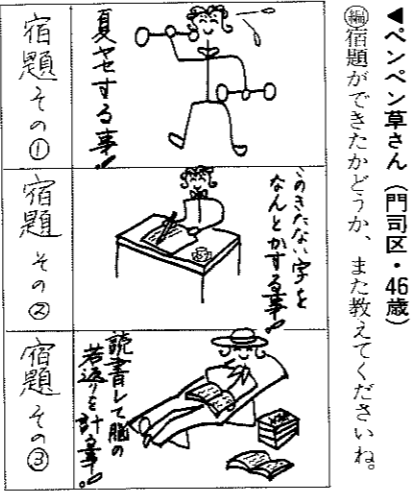 ◀ペンペン草さん（門司区・46歳）
㊙宿題ができたかどうか、また教えてくださいね。
宿題その①
夏ヤセする事!!
宿題その②
このきたない字を
なんとかする事!!
宿題その③
読書して脳の
若返りを計る事!!